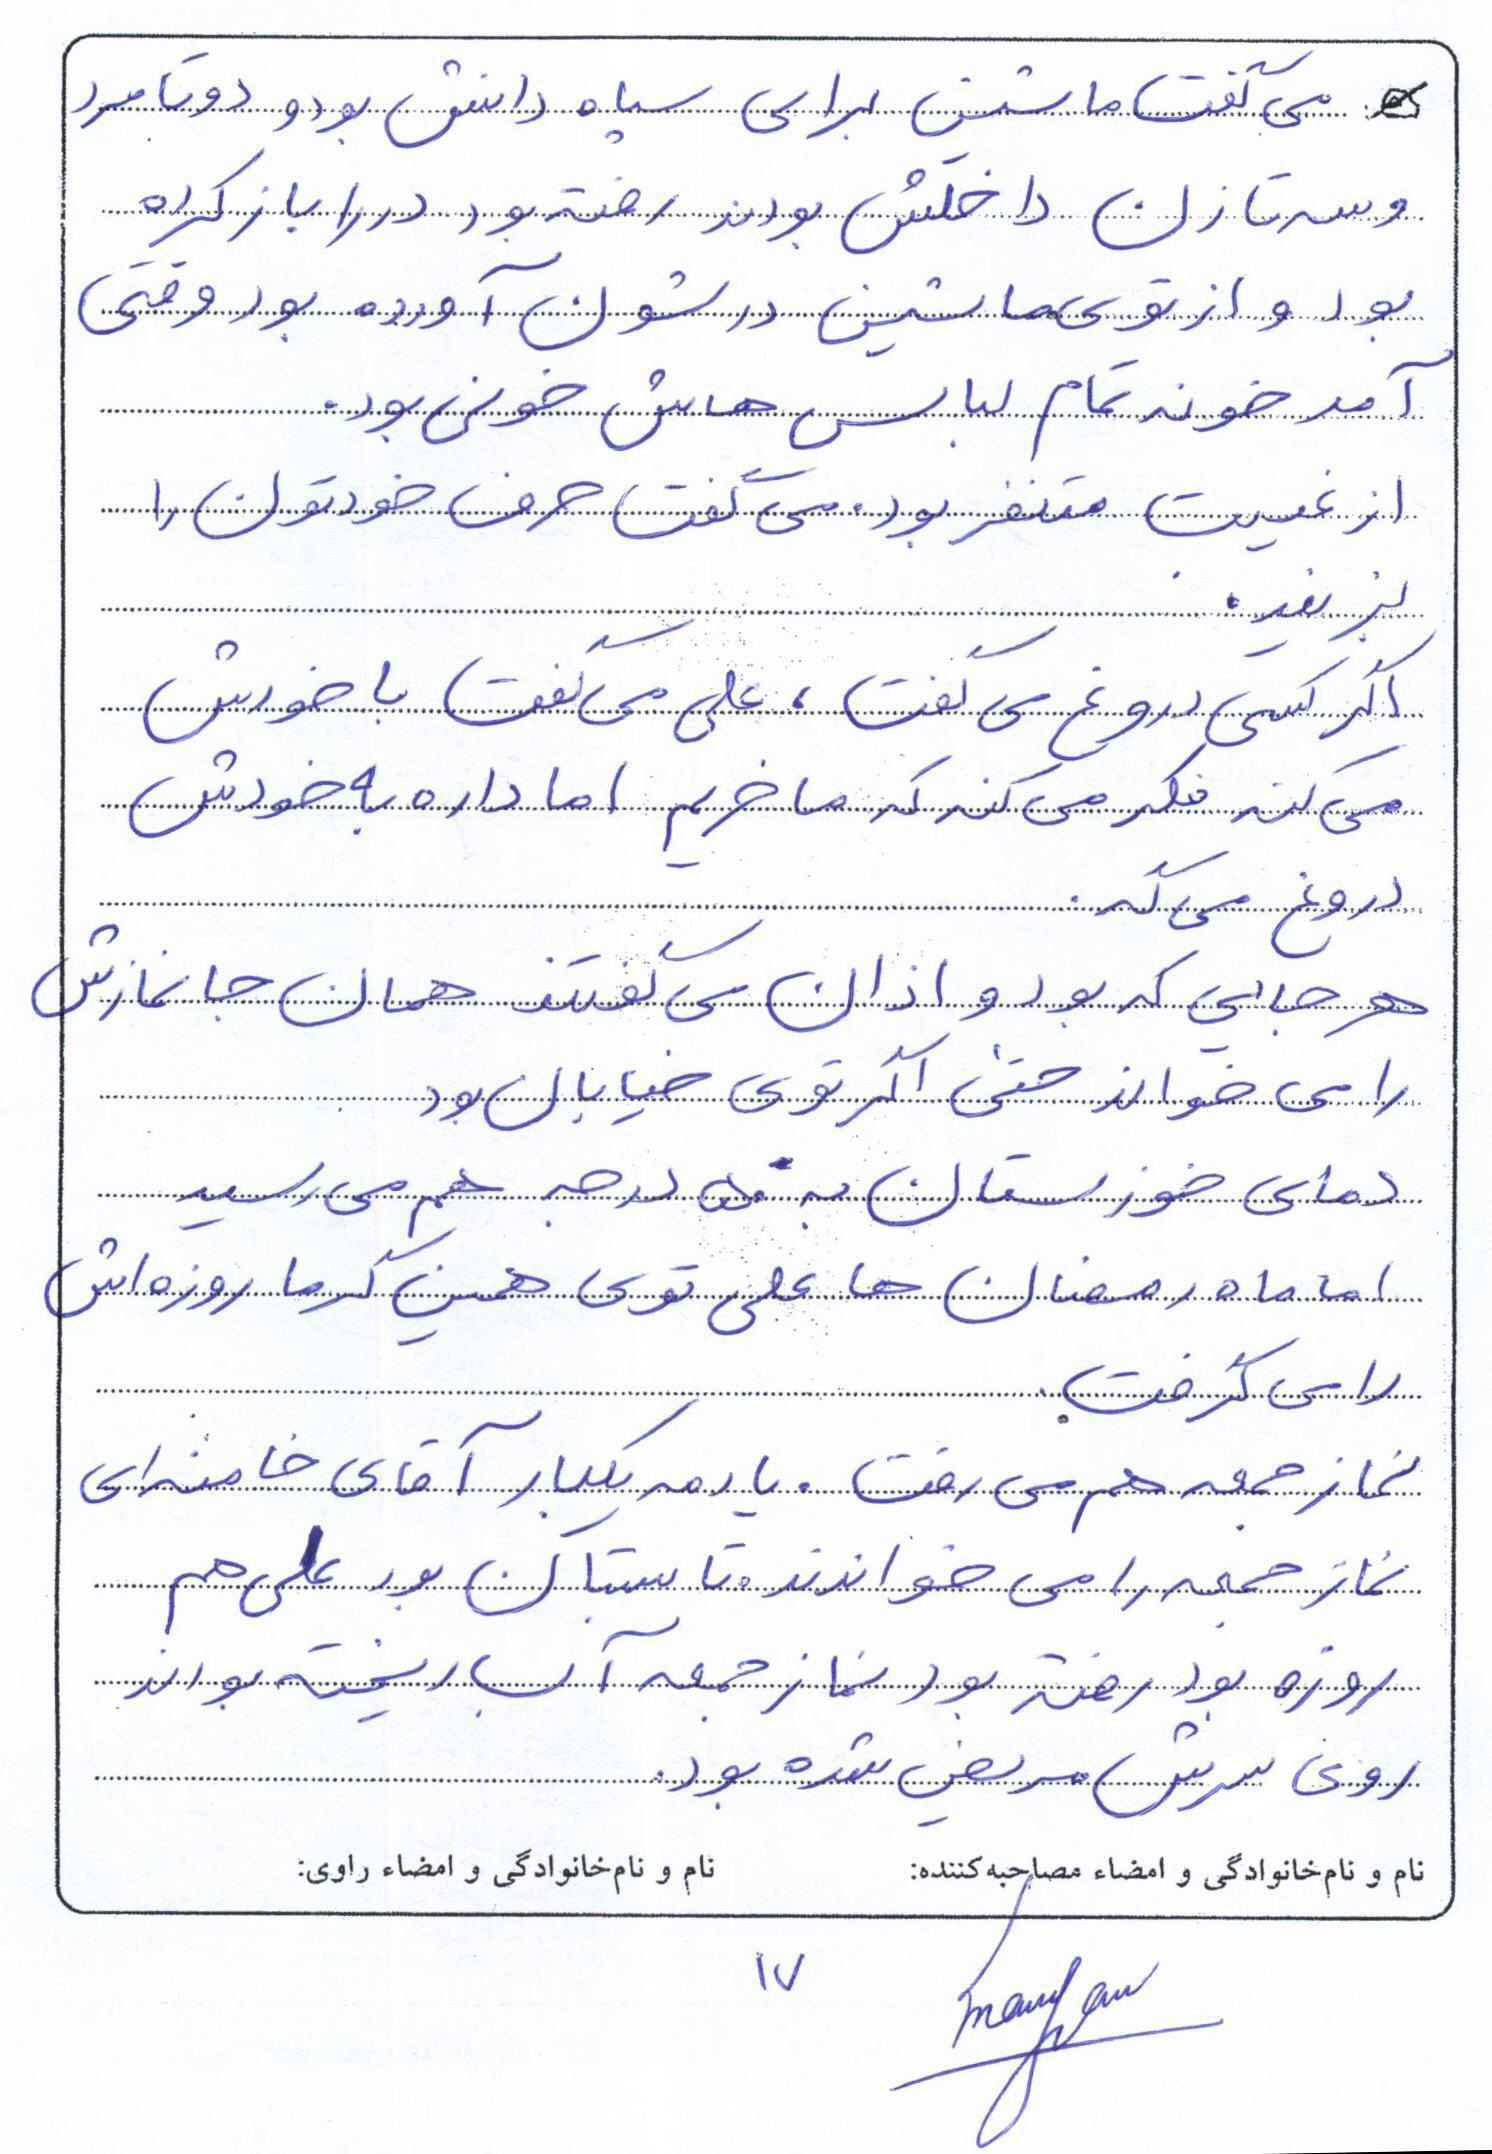 می‌گفت ماشین برای سپاه دانش بود و دو تا مرد
و سه تا زن داخلش بودند رفته بود در را باز کرده
بود و از توی ماشین درشون آورده بود وقتی
آمد خونه تمام لباس هاش خونی بود.
از غیبت متنفر بود. می‌گفت حرف خودتون را
بزنید.
اگر کسی دروغ می‌گفت، علی می‌گفت با خودش
می‌کنه فکر می‌کنه که ما خریم اما داره به خودش
دروغ می‌گه.
هر جایی که بود و اذان می‌گفتند همان جا نمازش
را می خواند حتی اگر توی خیابان بود
دمای خوزستان به ۵۰ درجه هم می رسید
اما ماه رمضان ها علی توی همین گرما روزه اش
را می گرفت.
نماز جمعه هم می رفت. یادمه یکبار آقای خامنه ای
نماز جمعه را می خواندند. تابستان بود علی هم
روزه بود رفته بود نماز جمعه آب ریخته بودند
روی سرش مریض شده بود.
نام و نام‌خانوادگی و امضاء مصاحبه‌کننده: نام و نام‌خانوادگی و امضاء راوی:
۱۷